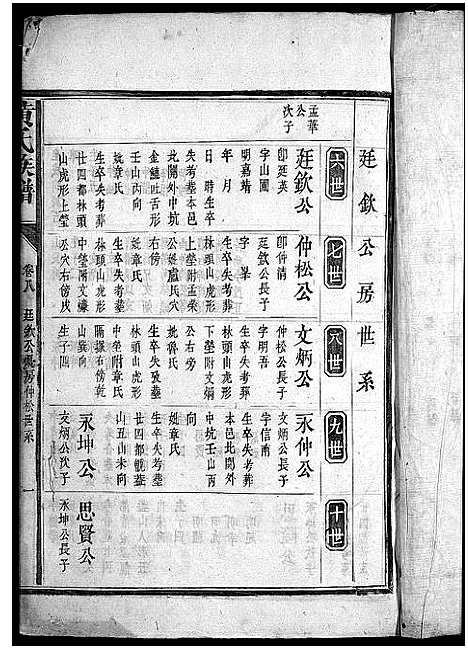 廷欽公房世系
六世
七世
八世
九世
十世
孟華
公
次子
廷欽公
卽廷英
字山圃
明嘉靖
年 月
日 時生卒
失考葬本邑
北關外中坑
金鐘吐舌形
壬山丙向
妣章氏
生卒失考葬
廿四都林頭
山虎形上塋
仲松公
卽仲清
廷欽公長子
字
生卒失考葬
林頭山虎形
上塋附孟榮
公妣盧氏穴
右傍
妣章氏
生卒失考葬
林頭山虎形
中塋
公穴右傍戌
文炳公
仲松公長子
字明吾
生卒失考葬
林頭山虎形
下塋附文炳
公右旁
妣魯氏
生卒失考葬
林頭山虎形
中塋附章氏
隔
山巽向
生子四
永仲公
文炳公長子
字信甫
生卒失考葬
本邑北關外
中坑壬山丙
向
妣章氏
生卒失考葬
廿四都
山丑山未向
永坤公
文炳公次子
思賢公
永坤公長子
黃氏族譜
卷八
廷欽公 房仲松世系
一